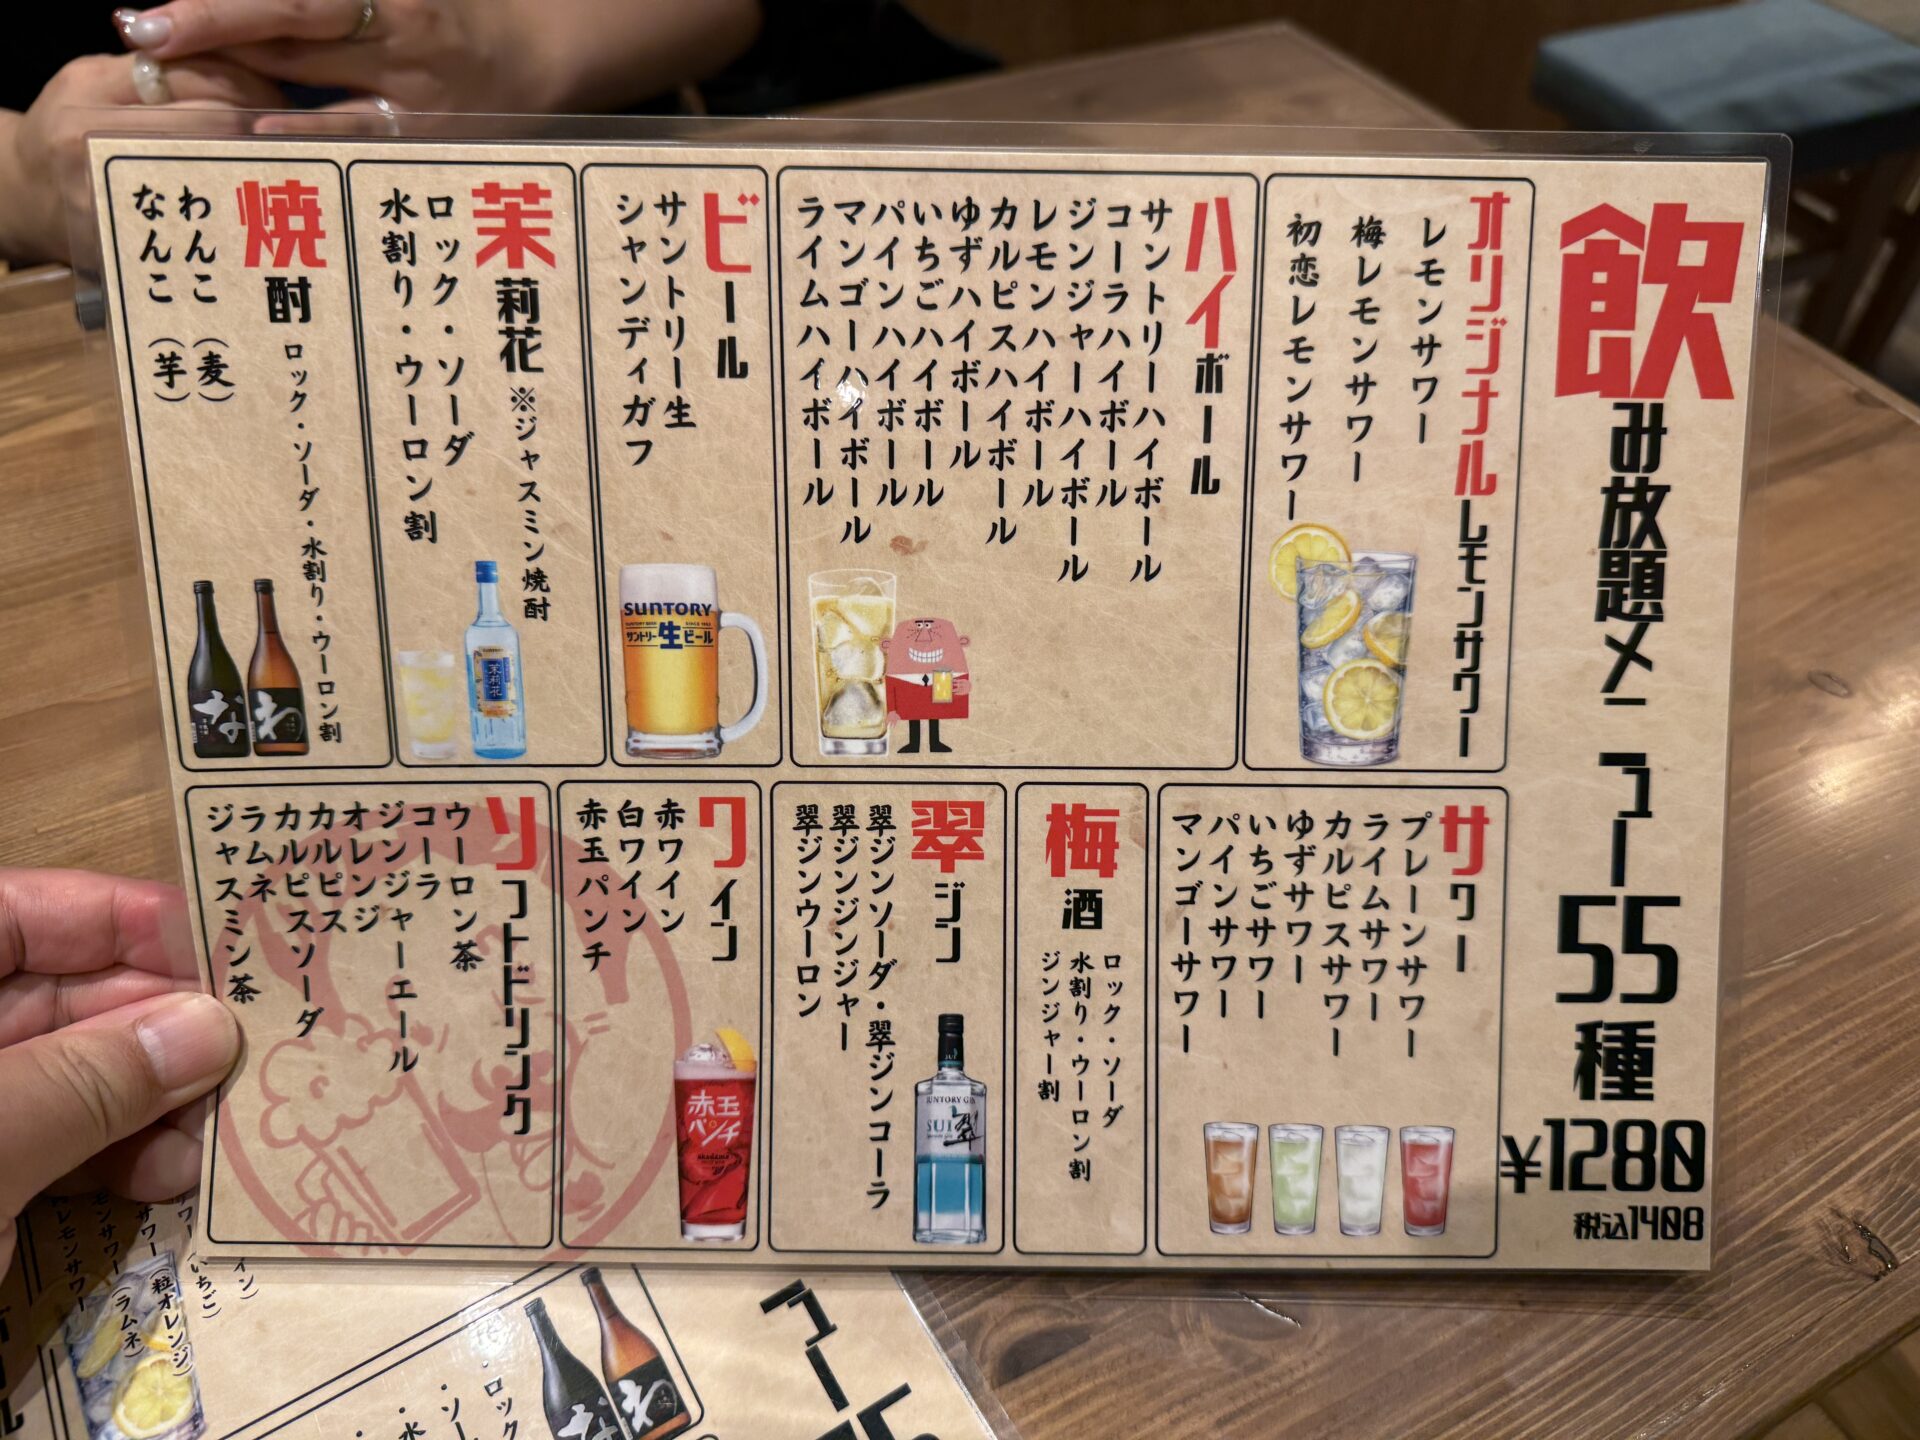 飲み放題メニュー55種
¥1280
税込1408
オリジナルレモンサワー
レモンサワー
梅レモンサワー
初恋レモンサワー
ハイボール
サントリーハイボール
コーラハイボール
ジンジャーハイボール
レモンハイボール
カルピスハイボール
ゆずハイボール
いちごハイボール
パインハイボール
マンゴーハイボール
ライムハイボール
ビール
サントリー生
シャンディガフ
SUNTORY
サントリー生ビール
茉莉花 ※ジャスミン焼酎
ロック・ソーダ
水割り・ウーロン割
茉莉花
焼酎 ロック・ソーダ・水割り・ウーロン割
わんこ(麦)
なんこ(芋)
な
わ
サワー
プレーンサワー
ライムサワー
カルピスサワー
ゆずサワー
いちごサワー
パインサワー
マンゴーサワー
梅酒
ロック・ソーダ
水割り・ウーロン割
ジンジャー割
翠ジン
翠ジンソーダ・翠ジンコーラ
翠ジンジンジャー
翠ジンウーロン
SUNTORY GIN
SUI
翠
ワイン
赤ワイン
白ワイン
赤玉パンチ
赤玉
パンチ
akadama
ソフトドリンク
ウーロン茶
コーラ
ジンジャーエール
オレンジ
カルピス
カルピスソーダ
ラムネ
ジャスミン茶
サワー(粒オレンジ)
モンサワー(ラムネ)
レモンサワー
ワー(いちご)
イン)
ュー
ロック
ソー
水
な
わ